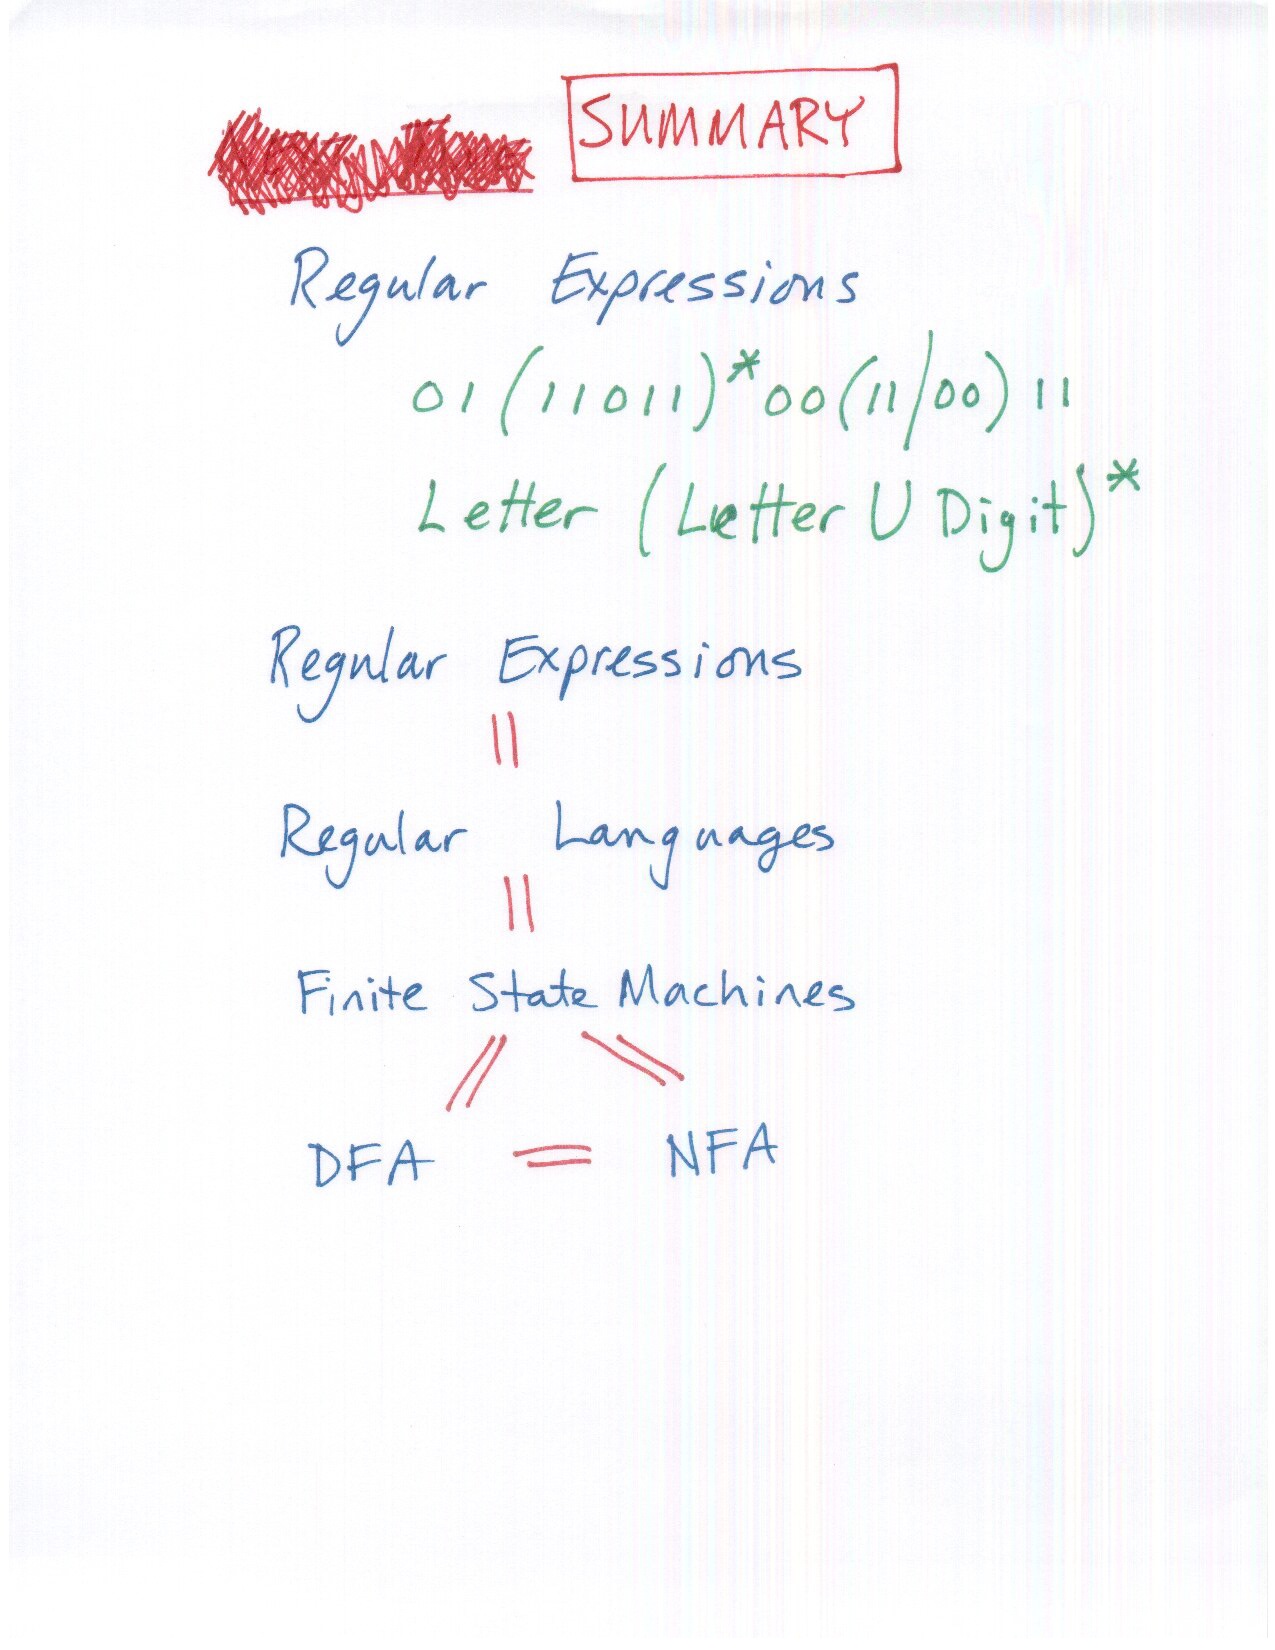 SUMMARY
Regular Expressions
01(11011)*00(11|00)11
Letter (Letter U Digit)*
Regular Expressions
||
Regular Languages
||
Finite State Machines
// \\
DFA = NFA